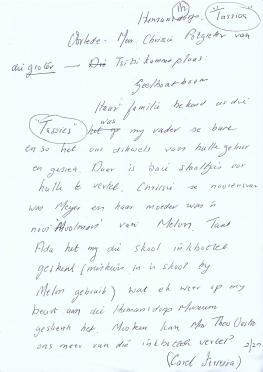 Humansdorp. "Tassies"
Oorlede - Mev. Chrissie Potgieter van
die groter — Die Tsitsikamma plaas:
Geelhoutboom
Haar familie bekend as die
"Tassies" was my vader se bure
en so het ons dikwels van hulle gehoor
en gesien. Daar is baie staaltjies oor
hulle te vertel. Chrissie se nooiensvan
was Meyer en haar moeder was 'n
nooi van Melon. Tant
Ada het my die skool inkboek
geskenk (miskien in 'n skool by
Melon gebruik) wat ek weer op my
beurt aan die Humansdorp Museum
geskenk het. Miskien kan Mnr Theo
ons meer van die vertel?
2/27
(Carol Ferreira)